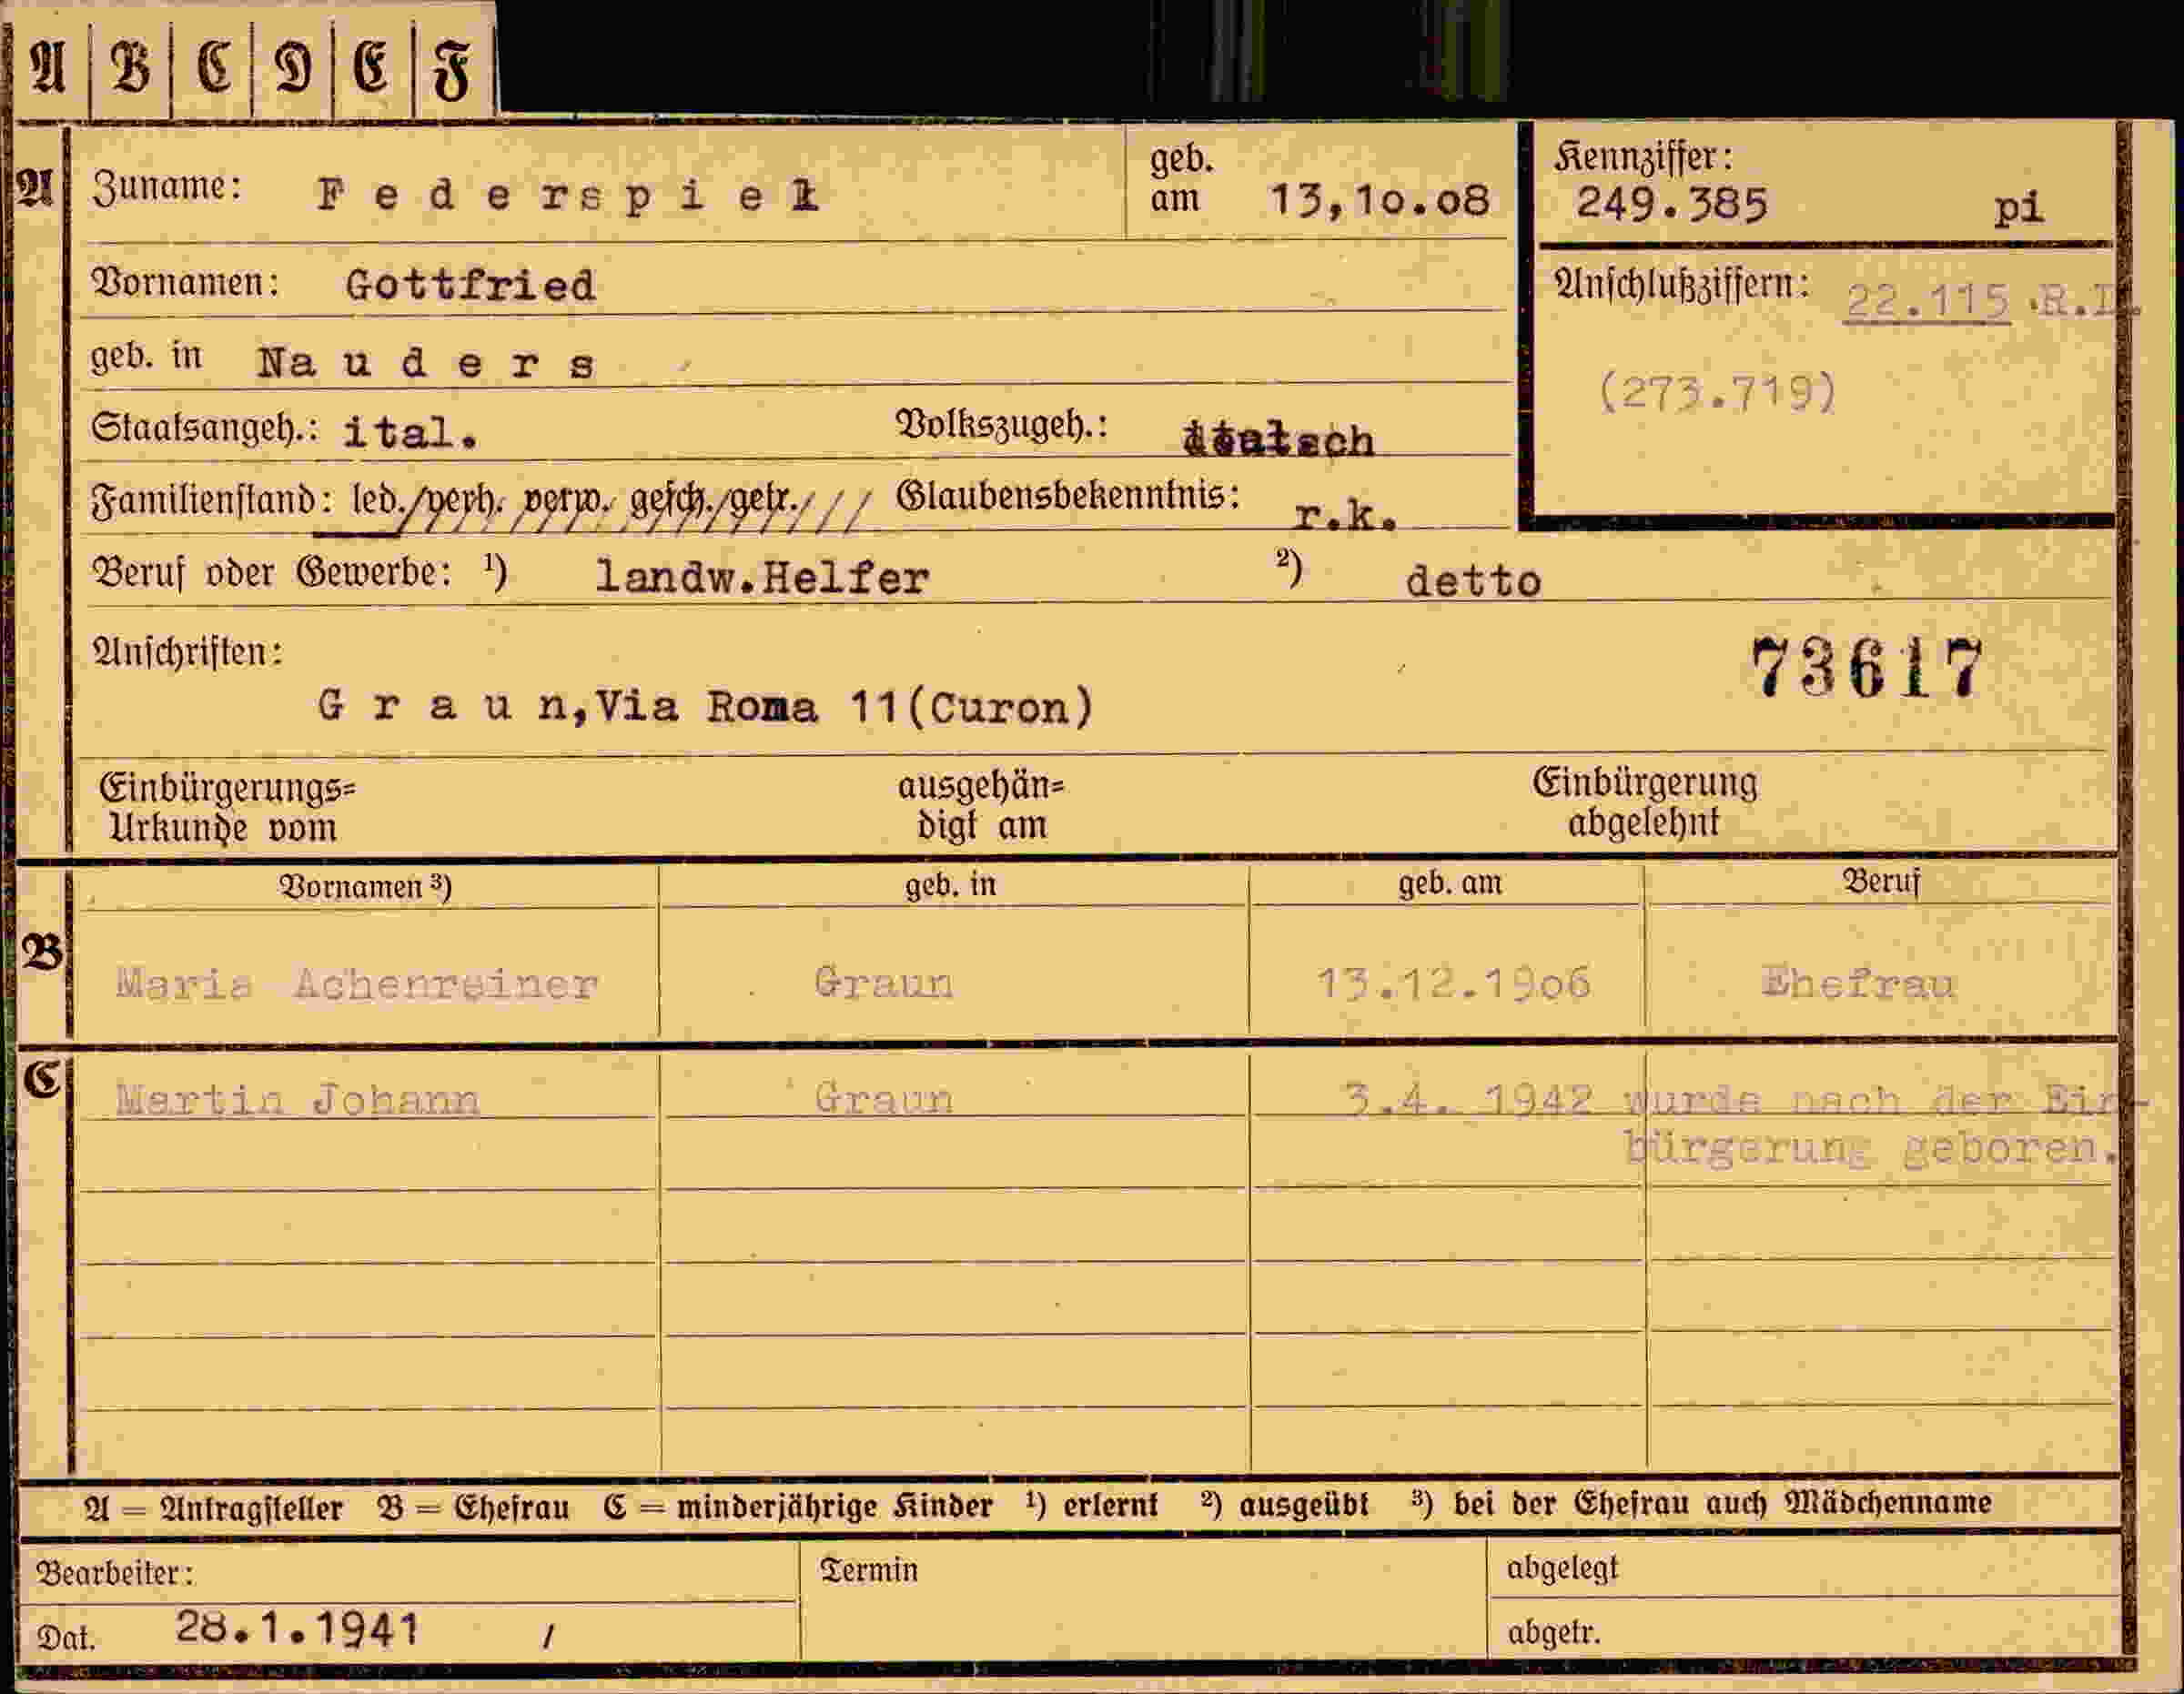 A B C D E F
A Zuname: Federspiel geb. am 13,10.08 Kennziffer: 249.385 pi
Vornamen: Gottfried Anschlußziffern: 22.115 .R.D.
geb. in Nauders (273.719)
Staatsangeh.: ital. Volkszugeh.: deutsch
Familienstand: led./verh. verw. gesch./getr. Glaubensbekenntnis: r.k.
Beruf oder Gewerbe: ¹) landw.Helfer ²) detto
Anschriften: 73617
Graun,Via Roma 11(Curon)
Einbürgerungs= ausgehän= Einbürgerung
Urkunde vom digt am abgelehnt
B Vornamen ³) geb. in geb. am Beruf
Maria Achenreiner Graun 13.12.1906 Ehefrau
C Martin Johann Graun 3.4. 1942 wurde nach der Ein-
bürgerung geboren.
A = Antragsteller B = Ehefrau C = minderjährige Kinder ¹) erlernt ²) ausgeübt ³) bei der Ehefrau auch Mädchenname
Bearbeiter: Termin abgelegt
Dat. 28.1.1941 / abgetr.